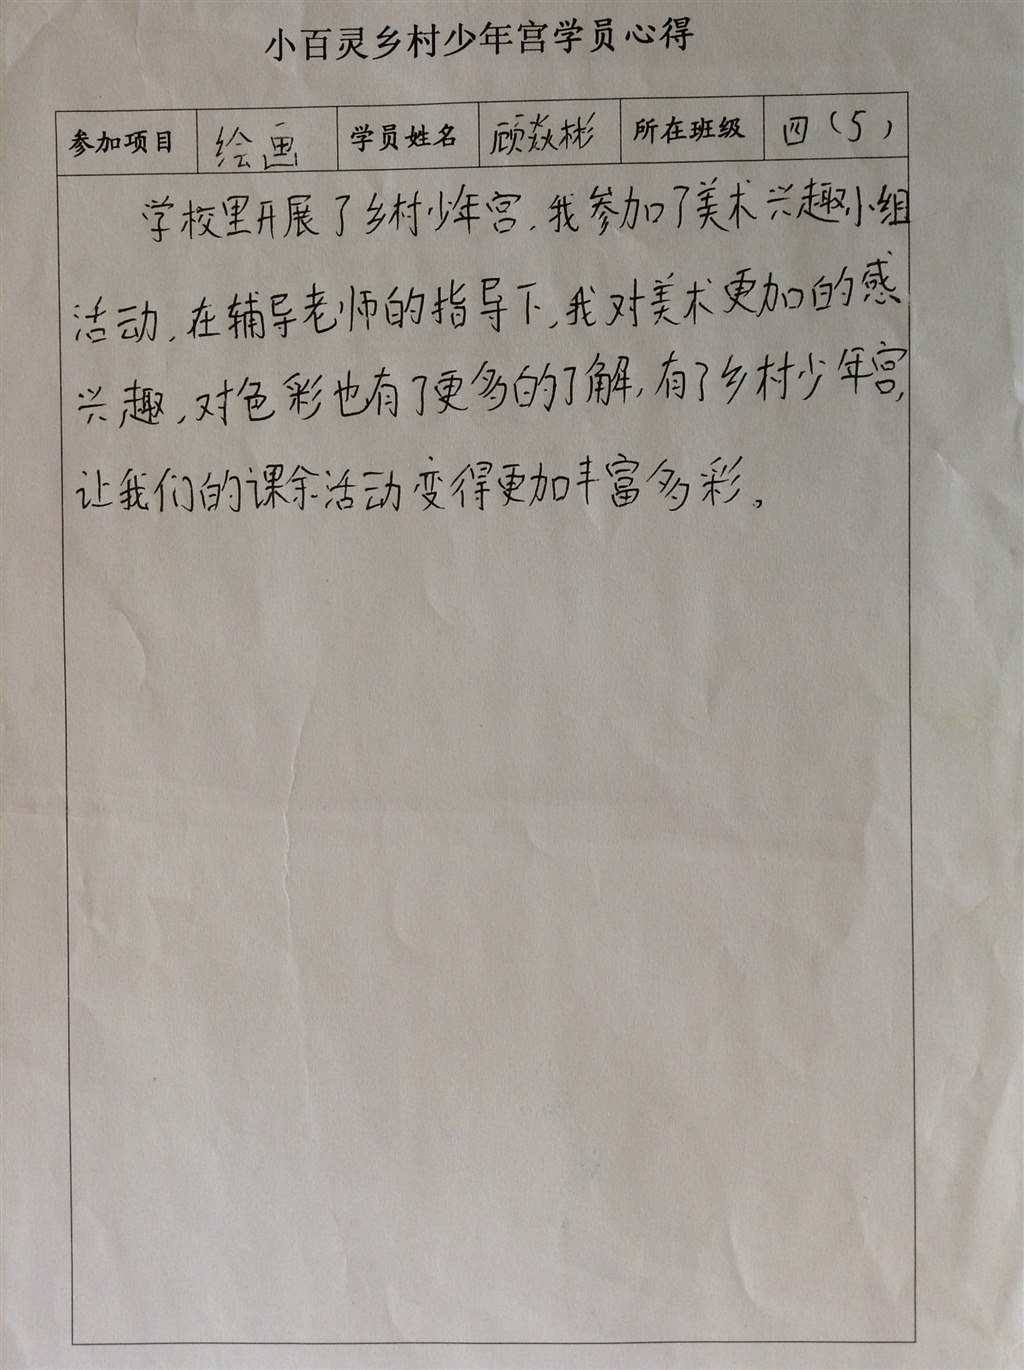 小百灵乡村少年宫学员心得
参加项目 绘画 学员姓名 顾焱彬 所在班级 四(5)
学校里开展了乡村少年宫,我参加了美术兴趣小组
活动,在辅导老师的指导下,我对美术更加的感
兴趣,对色彩也有了更多的了解,有了乡村少年宫,
让我们的课余活动变得更加丰富多彩。